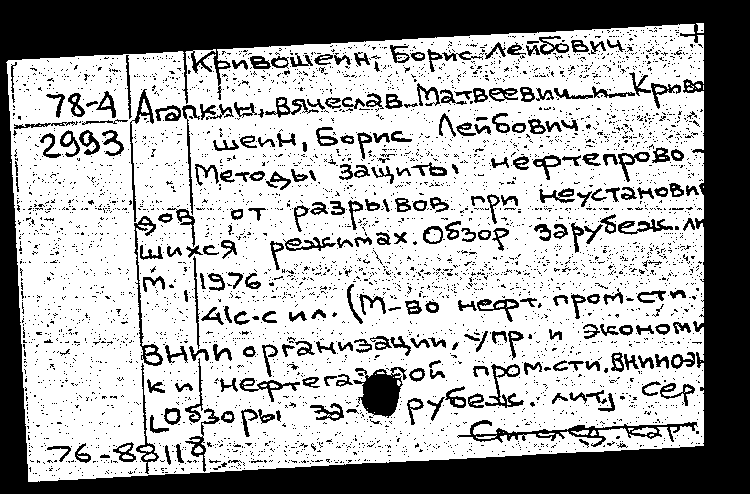 Кривошеин, Борис Лейбович.
78-4 Агапкин, Вячеслав Матвеевич и Криво
2993 шеин, Борис Лейбович.
Методы защиты нефтепрово-
дов от разрывов при неустанови
шихся режимах. Обзор зарубеж. ли
М., 1976.
41с. с ил. (М-во нефт. пром-сти.
ВНИИ организации, упр. и экономи
ки нефтегазовой пром-сти. ВНИИОЭН
[Обзоры зарубеж. лит.] Сер.
76-88118 След. карт